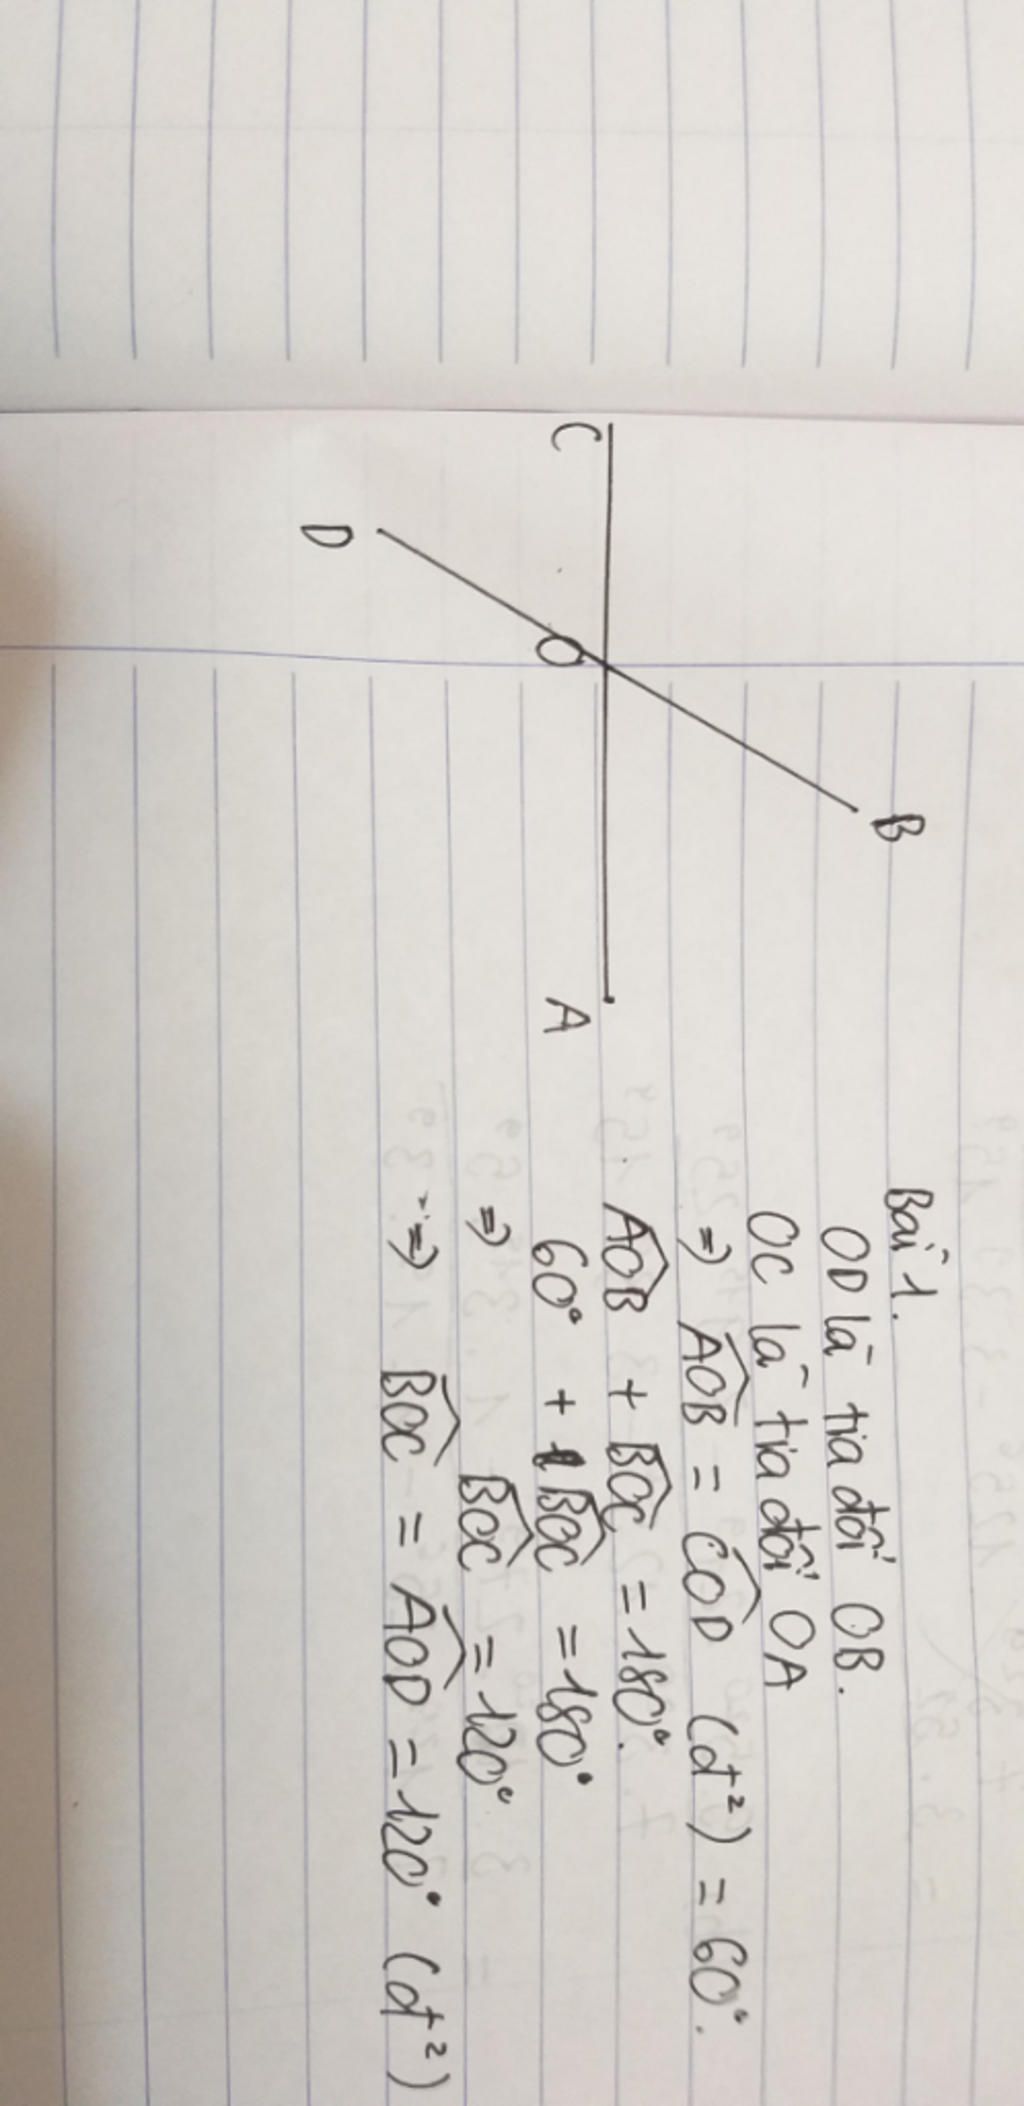 Bài 1.
OD là tia đối OB.
OC là tia đối OA
=> AOB = COD (đ²) = 60°.
AOB + BOC = 180°.
60° + BOC = 180°
=> BOC = 120°
=> BOC = AOD = 120° (đ²)
B
C
O
A
D